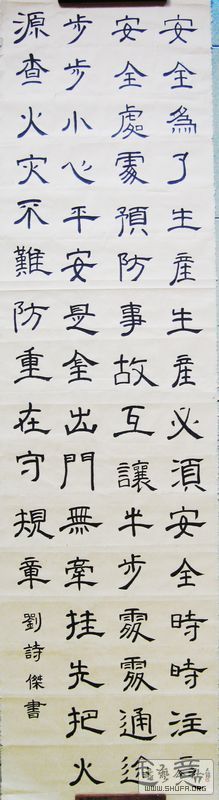 安全為了生產生產必須安全時時注意
安全處處預防事故互讓半步處處通途
步步小心平安是金出門無牽挂先把火
源查火灾不難防重在守規章
劉詩傑書
WWW.SHUFA.ORG